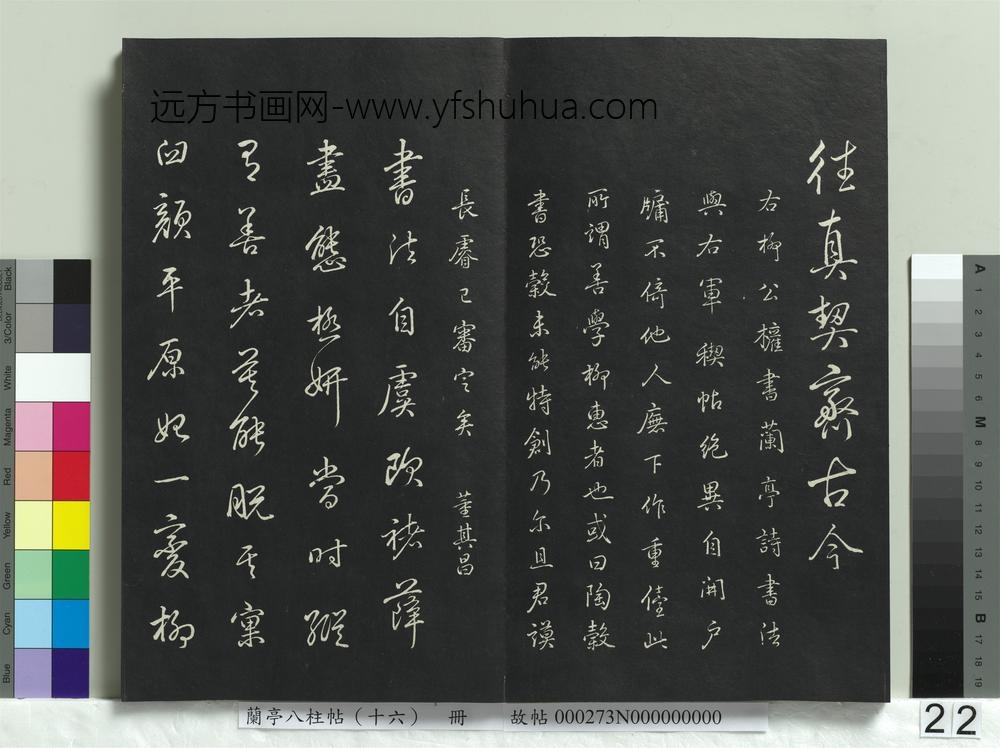 远方书画网-www.yfshuhua.com
往真契齊古今
右柳公權書蘭亭詩書法
與右軍稧帖絕異自開户
牖不倚他人廡下作重儓此
所謂善學柳惠者也或曰陶穀
書恐穀未能特創乃尔且君謨
長睿已審定矣 董其昌
書法自虞歐褚薛
盡態極妍當時縱
有善者莫能脱其窠
臼顔平原始一變柳
蘭亭八柱帖(十六) 冊 故帖 000273N000000000
22
Black
3/Color
White
Magenta
Red
Yellow
Green
Cyan
Blue
A
1
2
3
4
5
6
M
8
9
10
11
12
13
14
15
B
17
18
19